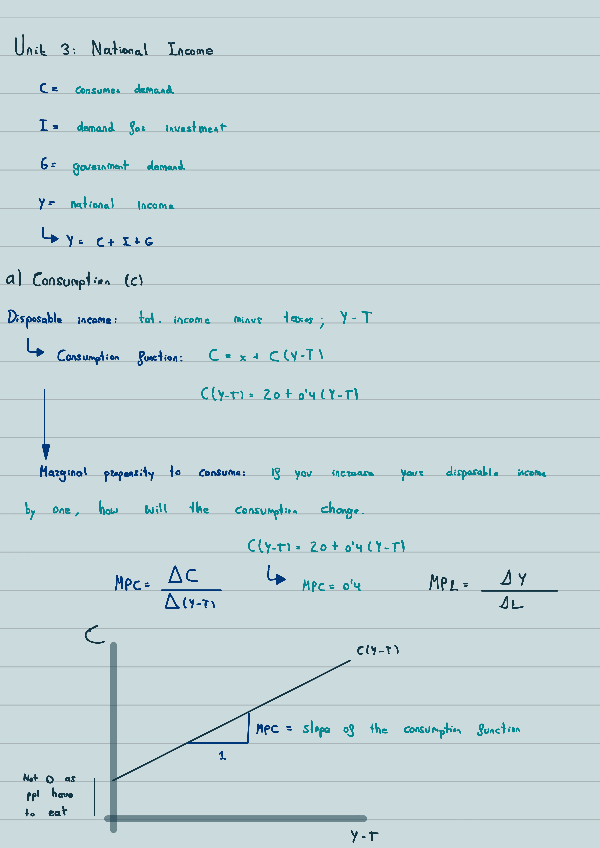 Unit 3: National Income
C = consumer demand
I = demand for investment
G = government demand
Y = national income
Y = C + I + G
a) Consumption (C)
Disposable income: tot. income minus taxes; Y-T
Consumption function: C = x + C(Y-T)
C(Y-T) = 20 + 0'4 (Y-T)
Marginal propensity to consume: If you increase your disposable income
by one, how will the consumption change.
C(Y-T) = 20 + 0'4 (Y-T)
MPC = ΔC / Δ(Y-T) MPC = 0'4 MPL = ΔY / ΔL
C
C(Y-T)
MPC = slope of the consumption function
1
Not 0 as
ppl have
to eat
Y-T